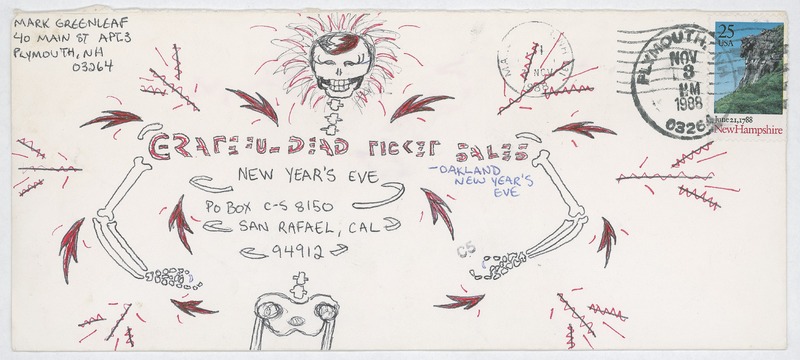 MARK GREENLEAF
40 MAIN ST APT.3
PLYMOUTH, NH
03264
GRATEFUL DEAD TICKET SALES
NEW YEAR'S EVE
PO BOX C-S 8150
SAN RAFAEL, CAL
94912
-OAKLAND
NEW YEAR'S
EVE
C5
NOV
PLYMOUTH,
NOV
3
PM
1988
0326
25
USA
June 21, 1788
New Hampshire